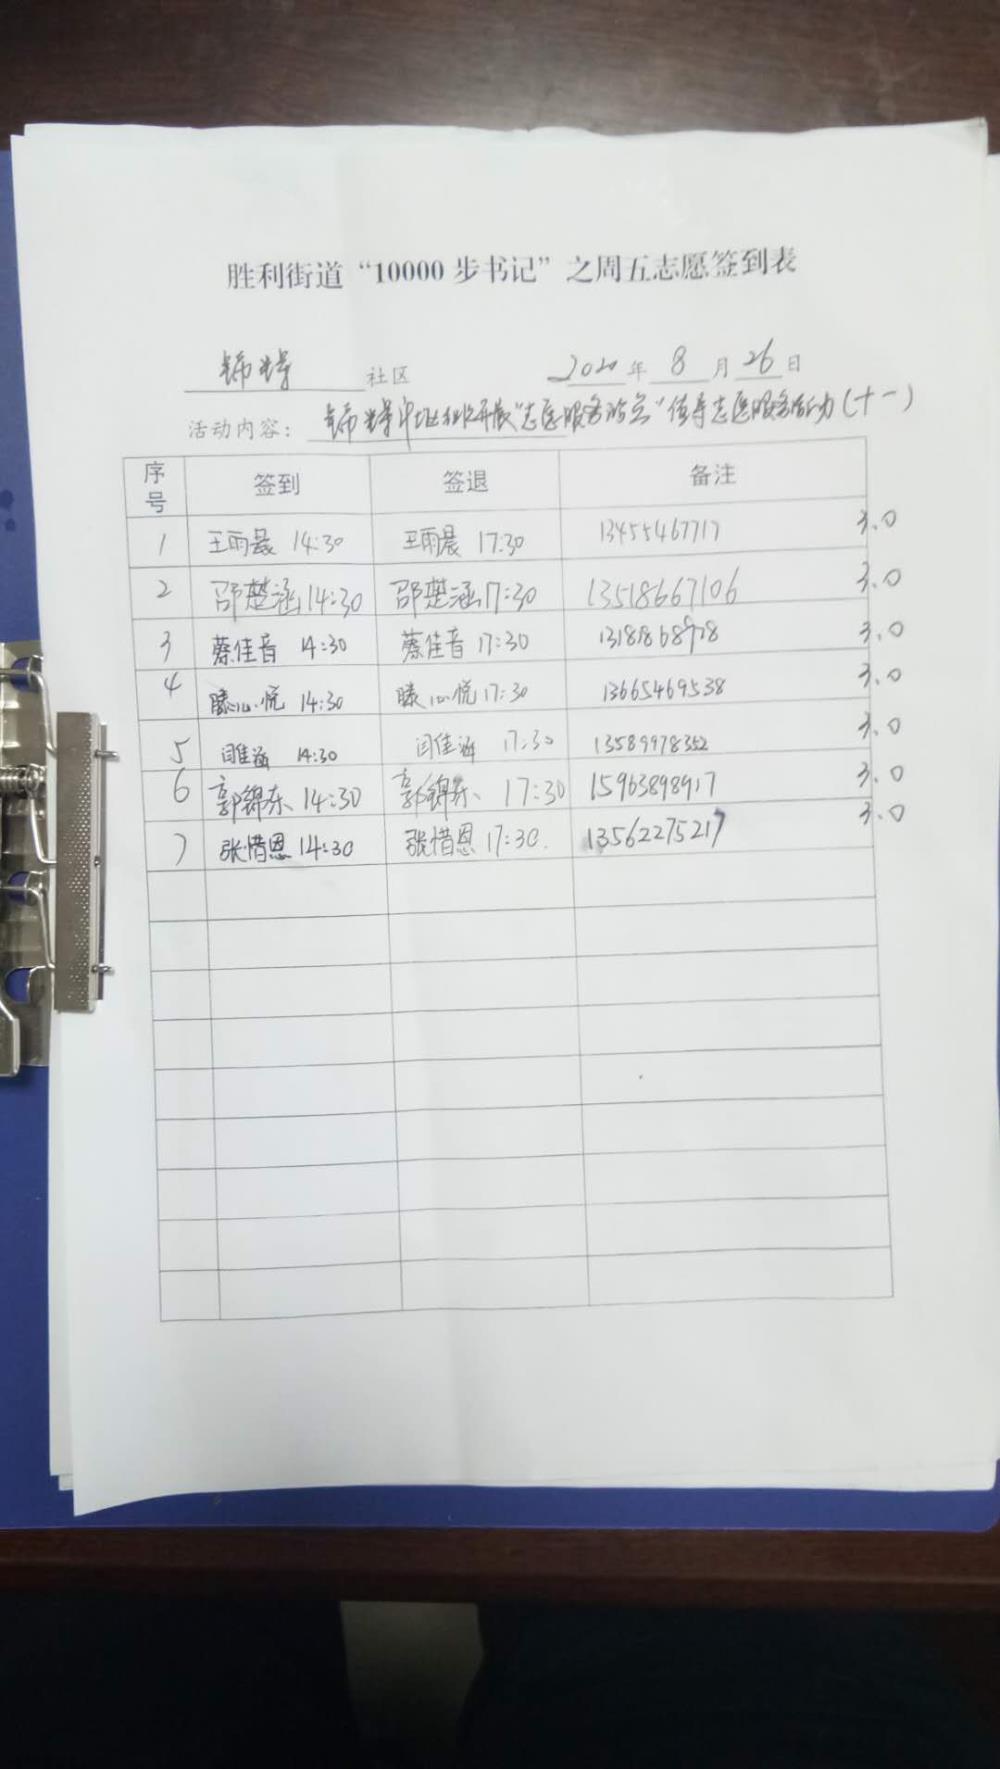 胜利街道“10000步书记”之周五志愿签到表
锦绣 社区 2020年8月26日
活动内容： 锦绣 社区开展“志愿服务 ” 志愿服务活动（十一）
序号 签到 签退 备注
1 王雨晨 14:30 王雨晨 17:30 13455467717 3.0
2 邵楚涵 14:30 邵楚涵 17:30 13518667106 3.0
3 蔡佳音 14:30 蔡佳音 17:30 3.0
4 滕心悦 14:30 滕心悦 17:30 13665469538 3.0
5 闫佳涵 14:30 闫佳涵 17:30 13589978352 3.0
6 郭锦东 14:30 郭锦东 17:30 15963898917 3.0
7 张惜恩 14:30 张惜恩 17:30. 13562275217 3.0